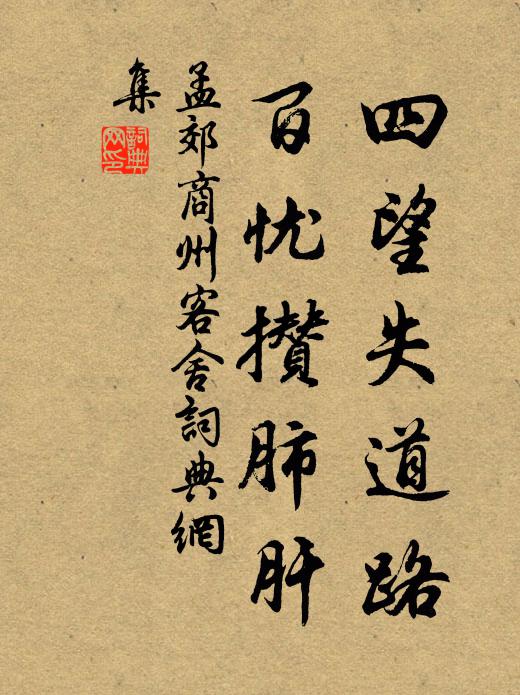 四望失道路
百忧攢肺肝
孟郊商州客舍詞典網
集
詞典
网印